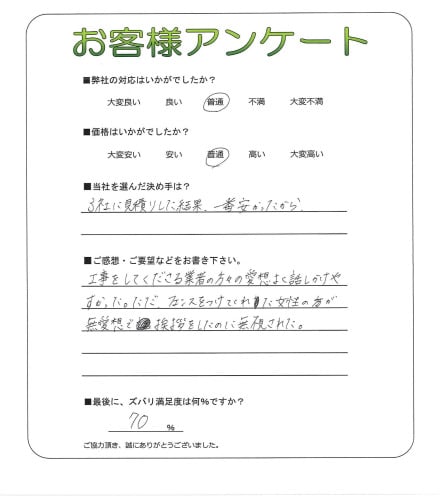 お客様アンケート
■弊社の対応はいかがでしたか?
大変良い 良い 普通 不満 大変不満
■価格はいかがでしたか?
大変安い 安い 普通 高い 大変高い
■当社を選んだ決め手は?
3社に見積りした結果、一番安かったから。
■ご感想・ご要望などをお書き下さい。
工事をしてくださる業者の方々の愛想よく話しかけや
すかった。ただ、をつけてくれた女性の方が
無愛想で挨拶をしたのに無視された。
■最後に、ズバリ満足度は何%ですか?
70 %
ご協力頂き、誠にありがとうございました。